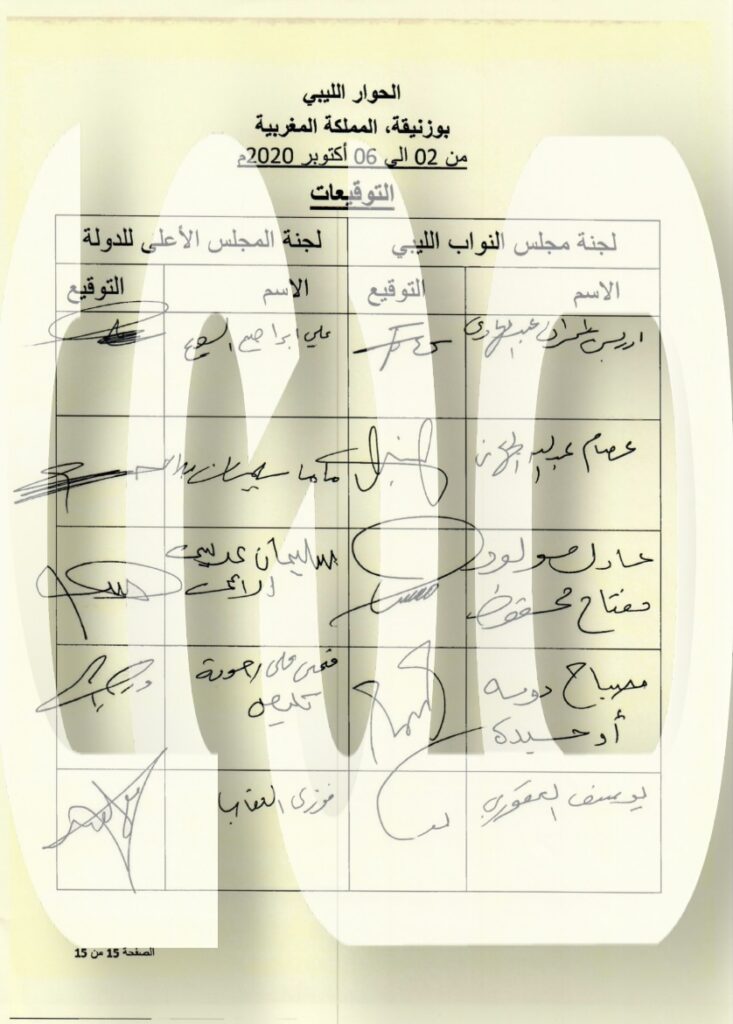 الحوار الليبي
بوزنيقة، المملكة المغربية
من 02 الى 06 أكتوبر 2020م
التوقيعات
لجنة مجلس النواب الليبي
لجنة المجلس الأعلى للدولة
الاسم
التوقيع
الاسم
التوقيع
ادريس عمران عبدالهادي
علي ابراهيم السويح
عصام عبدالله الجهاني
ماما سليمان بلال
عادل مولود
مفتاح محفوظ
سليمان عيسى
مصباح دومه
أوحيدة
فتحي علي
يوسف العقوري
فوزي العقاب
الصفحة 15 من 15